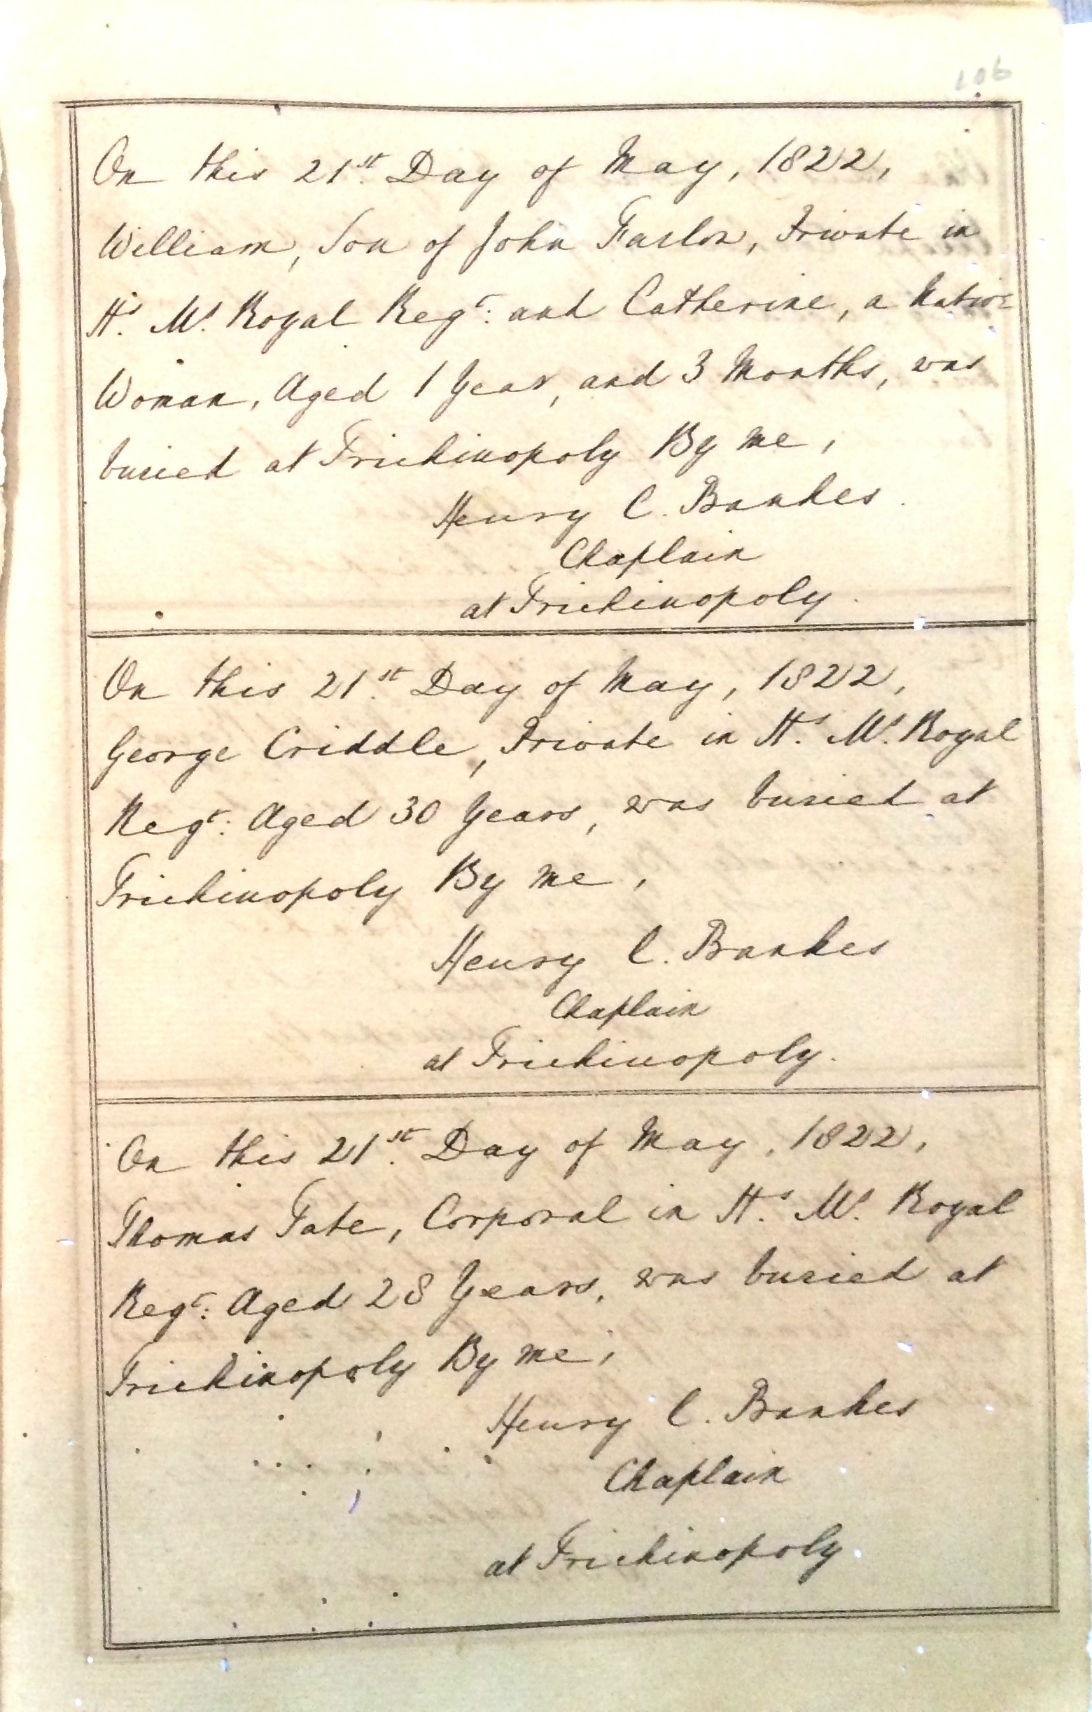 106
On this 21st Day of May, 1822,
William, Son of John Farlow, Private in
Hs. Ms. Royal Regt: and Catherine, a Native
Woman, Aged 1 Year, and 3 Months, was
buried at Trichinopoly By me,
Henry C. Bankes.
Chaplain
at Trichinopoly.
On this 21st Day of May, 1822,
George Criddle, Private in Hs. Ms. Royal
Regt: Aged 30 Years, was buried at
Trichinopoly By me,
Henry C. Bankes
Chaplain
at Trichinopoly.
On this 21st Day of May, 1822,
Thomas Tate, Corporal in Hs. Ms. Royal
Regt: Aged 28 Years, was buried at
Trichinopoly By me,
Henry C. Bankes
Chaplain
at Trichinopoly.